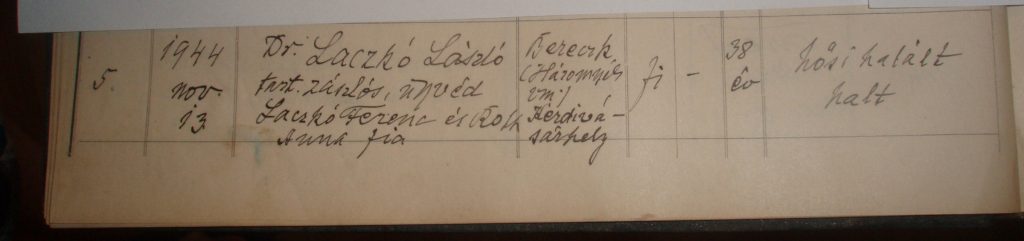 5.
1944
nov.
13
Dr. Laczkó László
tart. zászlós, ügyvéd
Laczkó Ferenc és Roth
Anna fia
Bereczk
(Háromszék
vm.)
Kézdivá-
sárhely
fi
-
38
év
hősi halált
halt